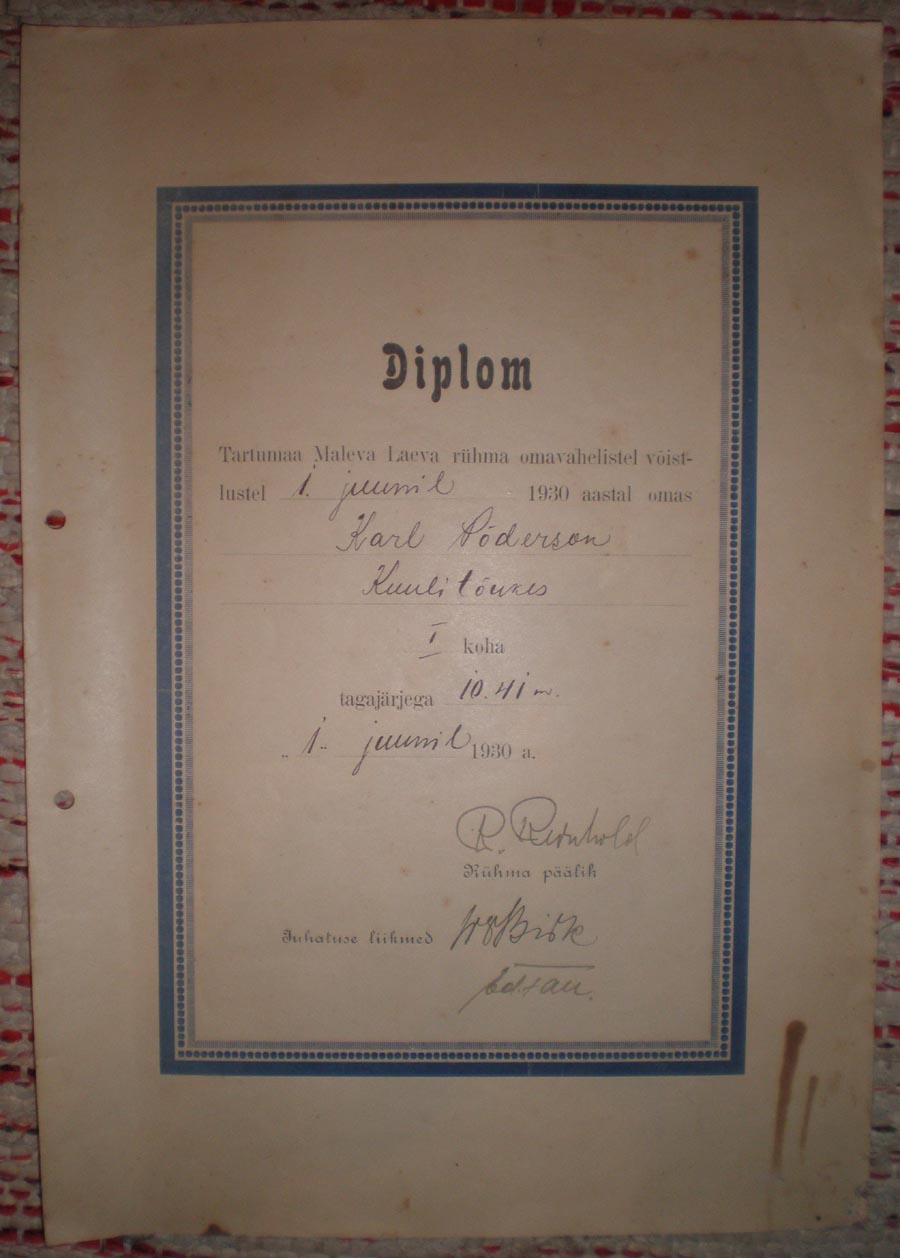 Diplom
Tartumaa Maleva Laeva rühma omavahelistel võist-
lustel 1. juunil 1930 aastal omas
Karl Söderson
Kuulitõukes
I koha
tagajärjega 10.41 m.
„1." juunil 1930 a.
R. Reinhold
Rühma päälik
Juhatuse liikmed